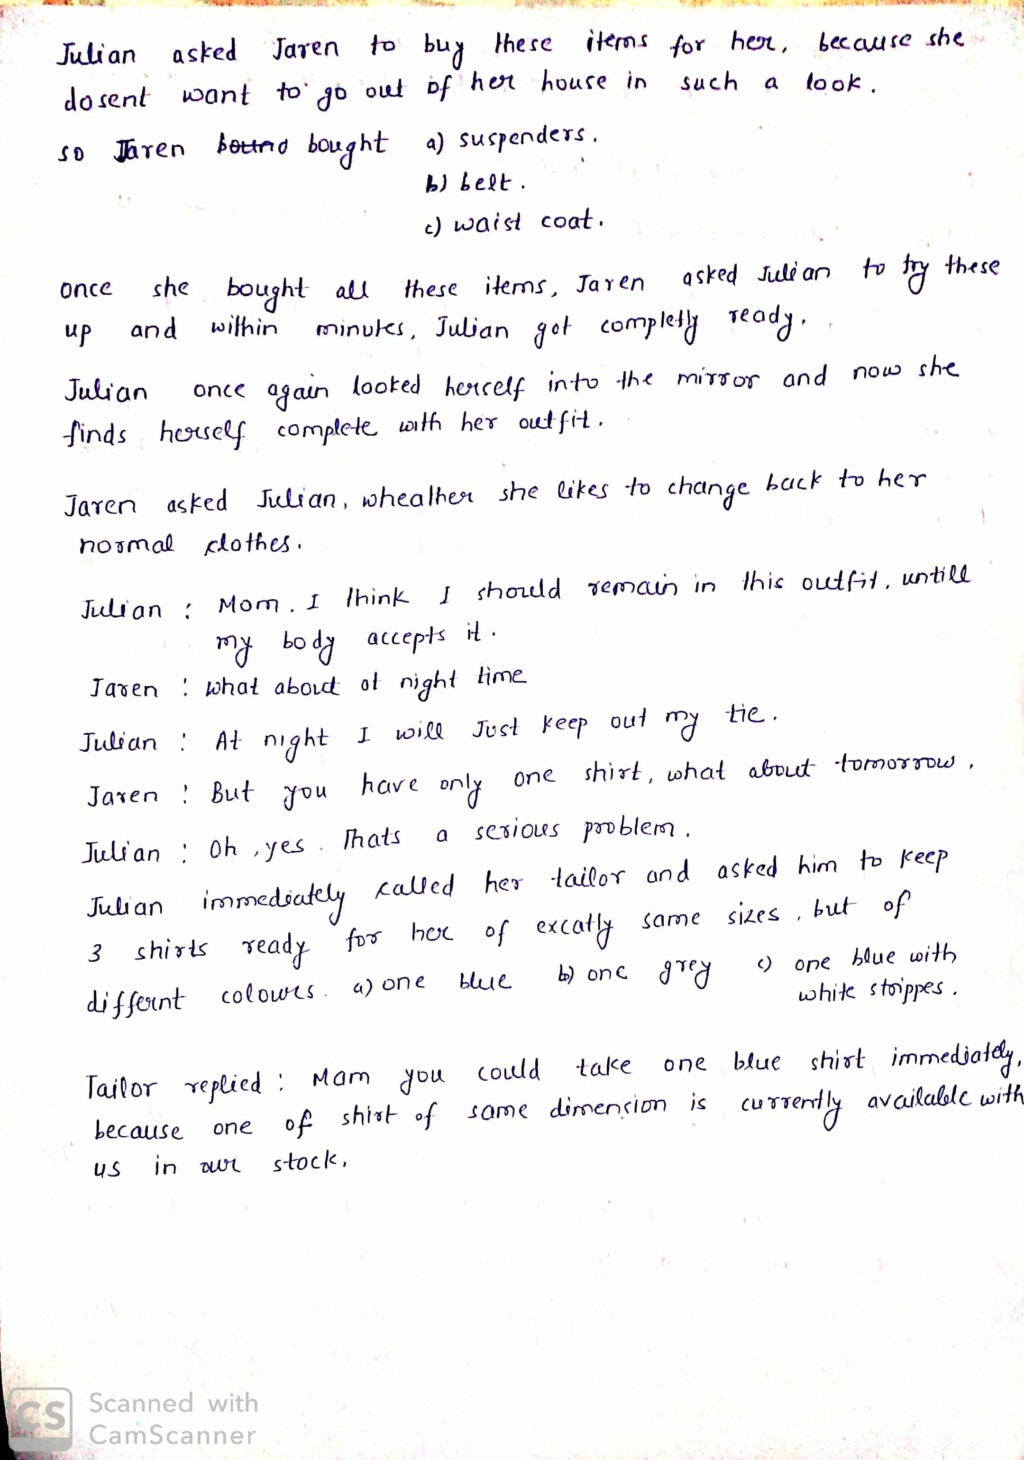 Julian asked Jaren to buy these items for her, because she
dosent want to go out of her house in such a look.
so Jaren bound bought a) suspenders.
b) belt.
c) waist coat.
once she bought all these items, Jaren asked Julian to try these
up and within minutes, Julian got completly ready.
Julian once again looked herself into the mirror and now she
finds herself complete with her outfit.
Jaren asked Julian, wheather she likes to change back to her
normal clothes.
Julian : Mom. I think I should remain in this outfit, untill
my body accepts it.
Jaren : what about at night time
Julian : At night I will Just keep out my tie.
Jaren : But you have only one shirt, what about tomorrow,
Julian : Oh, yes. Thats a serious problem.
Julian immediately called her tailor and asked him to keep
3 shirts ready for her of excatly same sizes, but of
differnt colours. a) one blue b) one grey c) one blue with
white strippes.
Tailor replied : Mam you could take one blue shirt immediately,
because one of shirt of same dimension is currently available with
us in our stock.
CS Scanned with
CamScanner